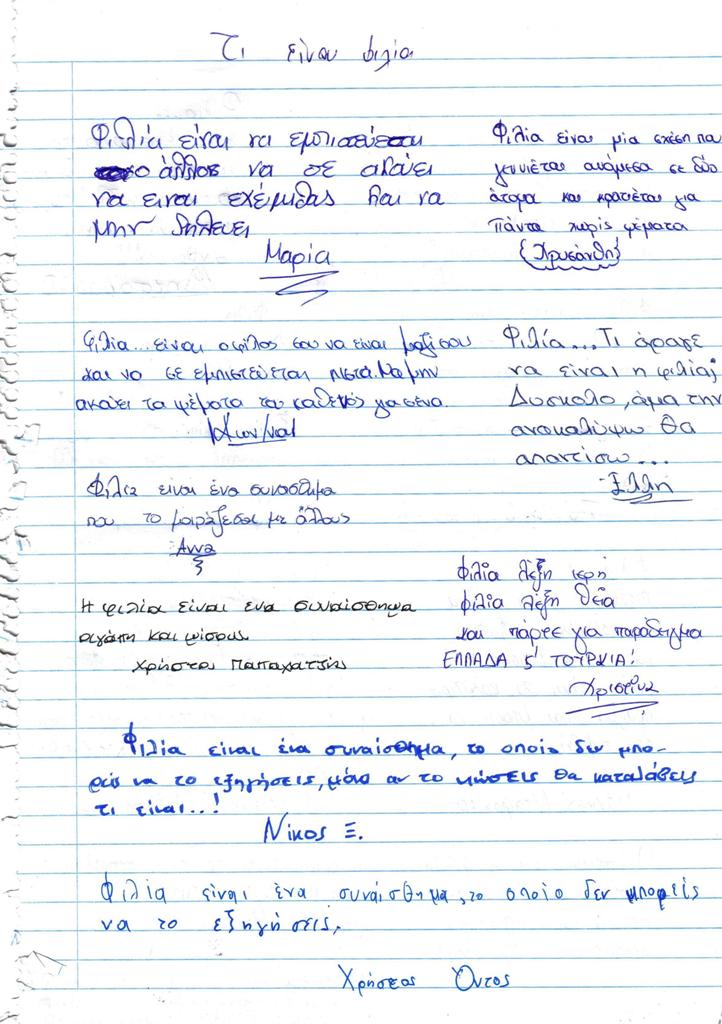 Τι είναι φιλία
Φιλία είναι να εμπιστεύεται
ο άλλος να σε ακούει
να ειναι εχέμυθος και να
μην ζηλευει
Μαρία
Φιλία είναι μία σχέση που
γεννιέται ανάμεσα σε δύο
άτομα και κρατιέται για
πάντα χωρίς ψέματα
{Χρυσάνθη}
Φιλία... είναι ο φίλος σου να είναι μαζί σου
και να σε εμπιστεύεται πιστά. Να μην
ακούει τα ψέματα του καθενός για σενα.
Φιλία... Τι άραγε
να είναι η φιλία;
Δυσκολο, άμα την
ανακαλύψω θα
απαντίσω...
Έλλη
Φιλία ειναι ένα συναισθημα
που το μοιράζεσαι με άλλους
Αννα
Η φιλία είναι ενα συναίσθημα
αγάπη και μίσους
Χρήστος Παπαχατζής
Φιλία λέξη ιερή
φιλία λέξη θεΐα
και πάρτε για παράδειγμα
ΕΛΛΑΔΑ ς' ΤΟΥΡΚΙΑ!
Χριστίνα
Φιλία είναι ένα συναίσθημα, το οποίο δεν μπο-
ρείς να το εξηγήσεις, μόνο αν το νιώσεις θα καταλάβεις
τι είναι..!
Νίκος Ξ.
Φιλία είναι ένα συναίσθημα, το οποίο δεν μπορείς
να το εξηγήσεις.
Χρήστος Όντος